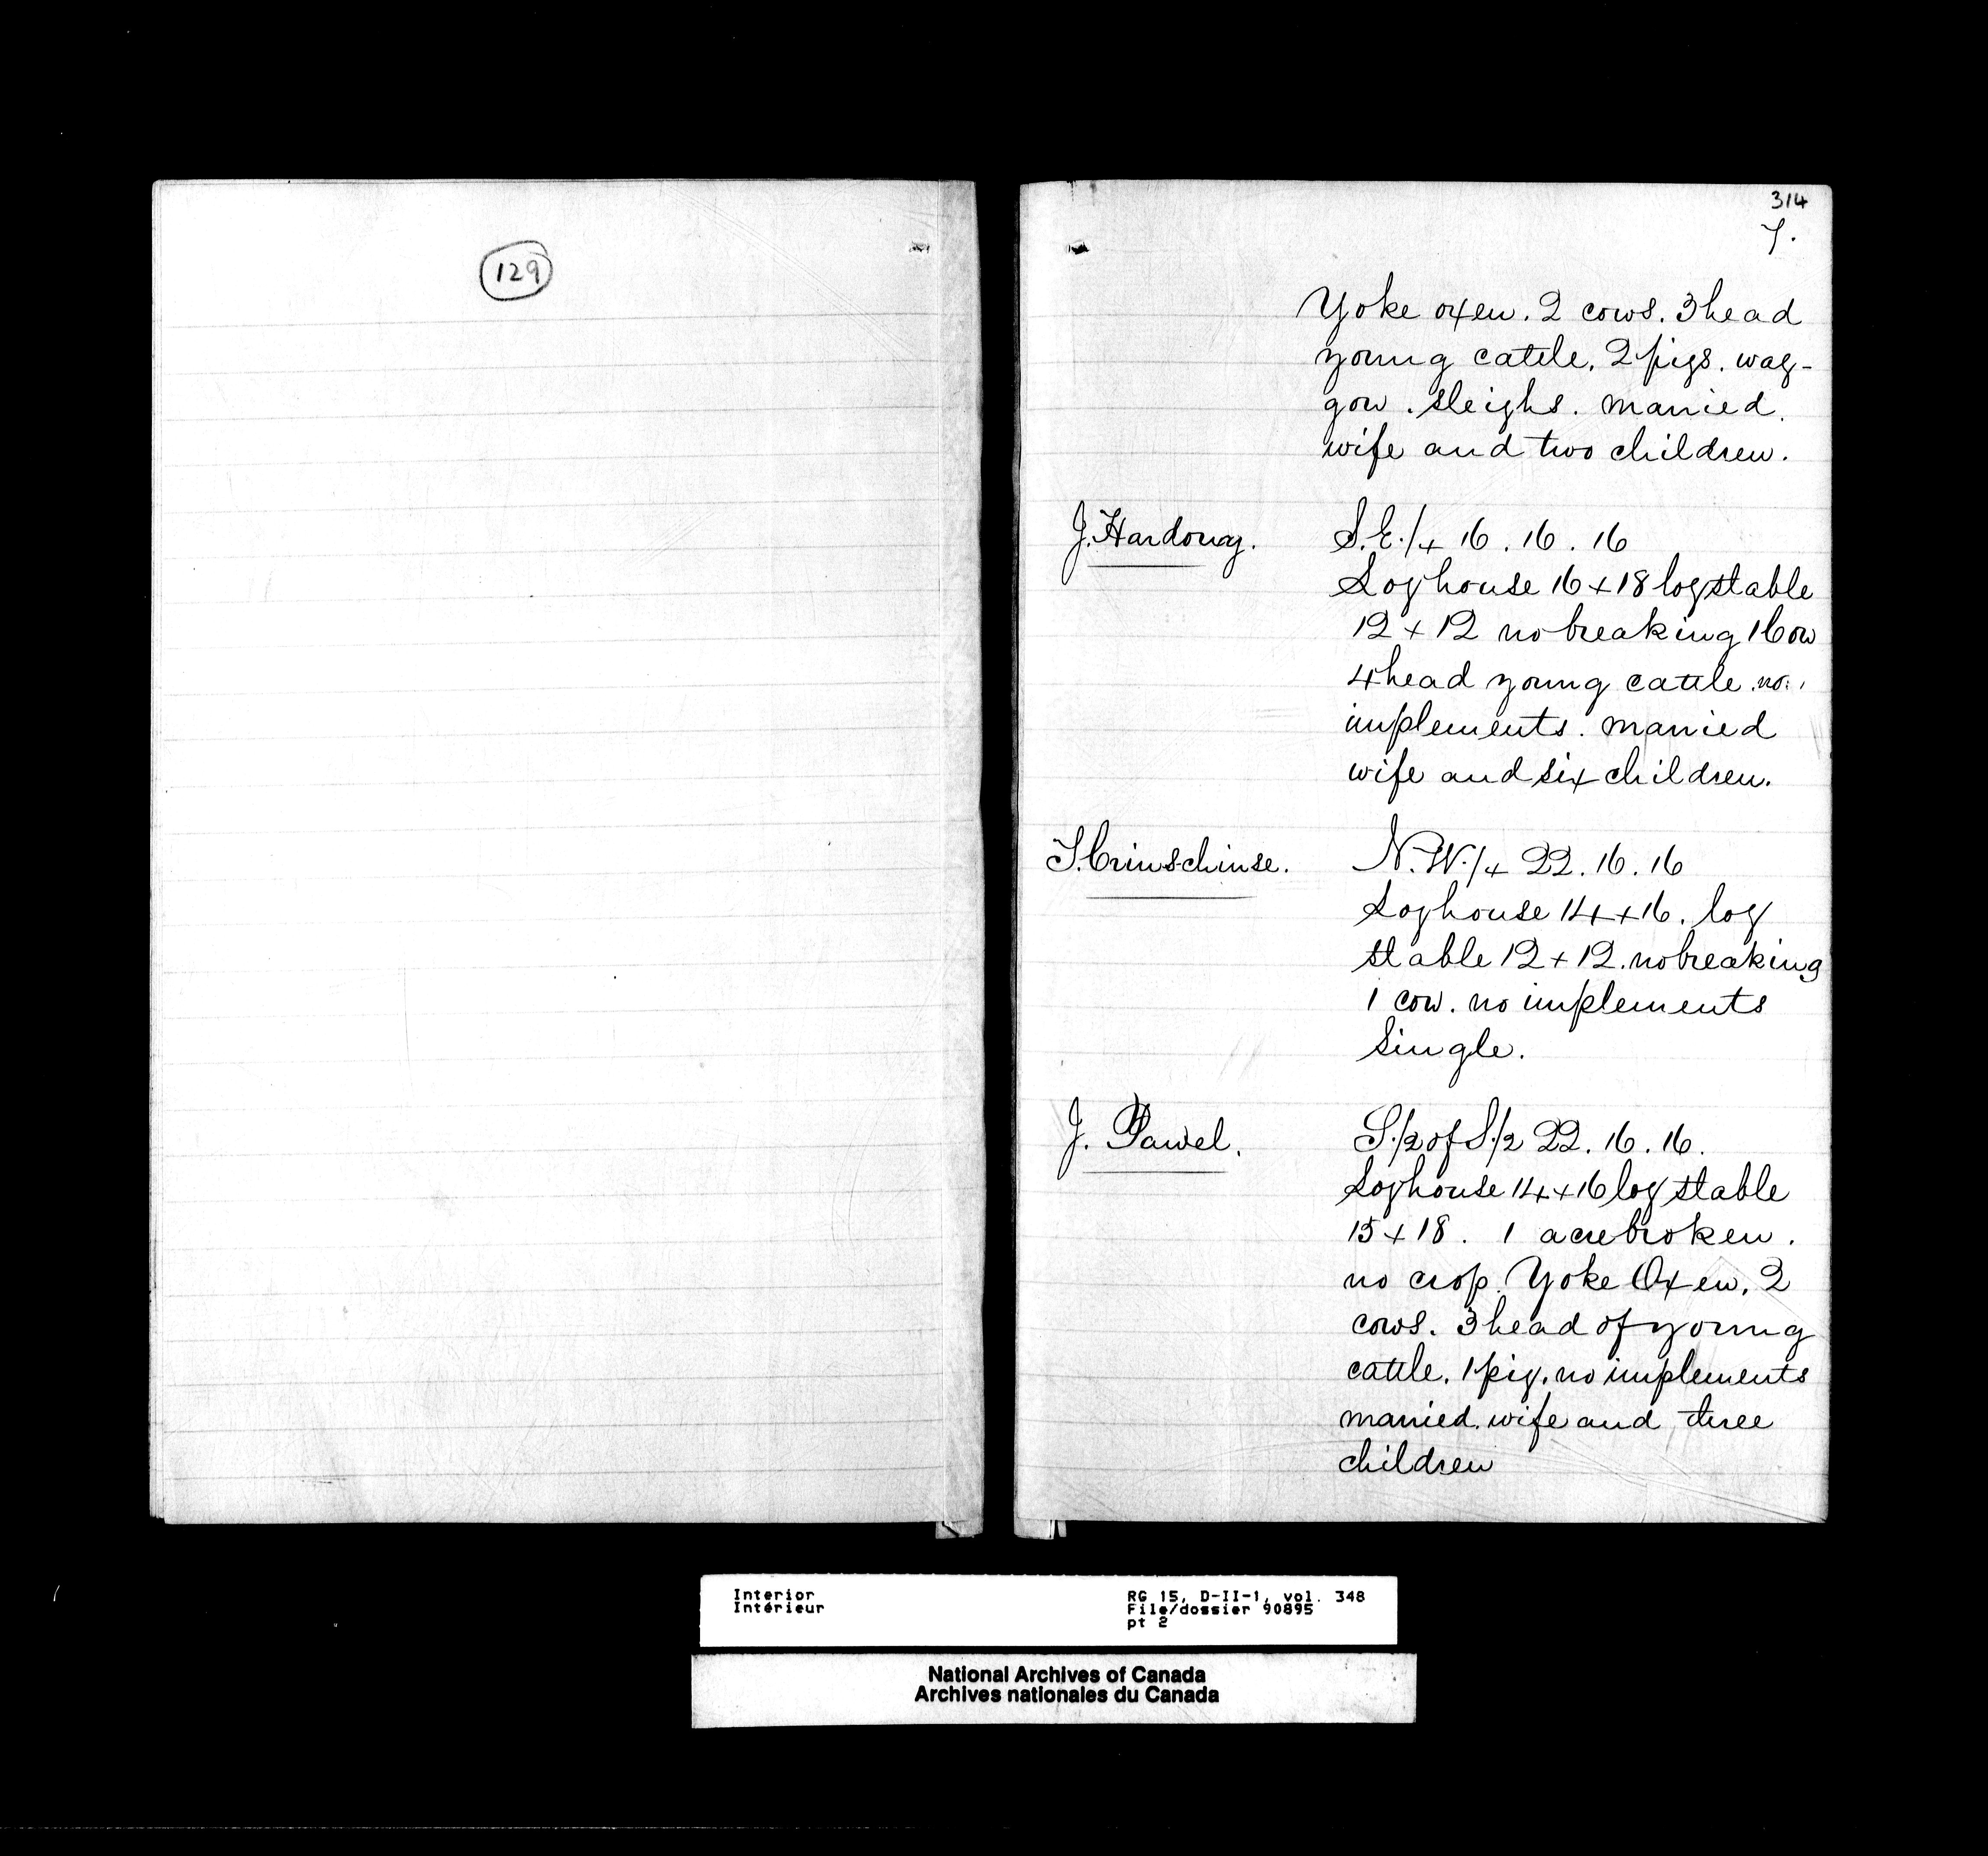 129
314
7.
Yoke oxen. 2 cows. 3 head
young cattle. 2 pigs. wag-
gon. sleighs. married.
wife and two children.
J. Hardouay. S.E. 1/4 16. 16. 16
Loghouse 16 x 18 log stable
12 x 12 no breaking 1 Cow
4 head young cattle. no.
implements. married
wife and six children.
N.W. 1/4 22. 16. 16
Loghouse 14 x 16. log
stable 12 x 12. no breaking
1 cow. no implements
Single.
J. Pawel. S. 1/2 of S. 1/2 22. 16. 16.
Loghouse 14 x 16 log stable
15 x 18. 1 acre broken.
no crop. Yoke Oxen. 2
cows. 3 head of young
cattle. 1 pig. no implements
married. wife and three
children
Interior
Intérieur
RG 15, D-II-1, vol. 348
File/dossier 90895
pt 2
National Archives of Canada
Archives nationales du Canada